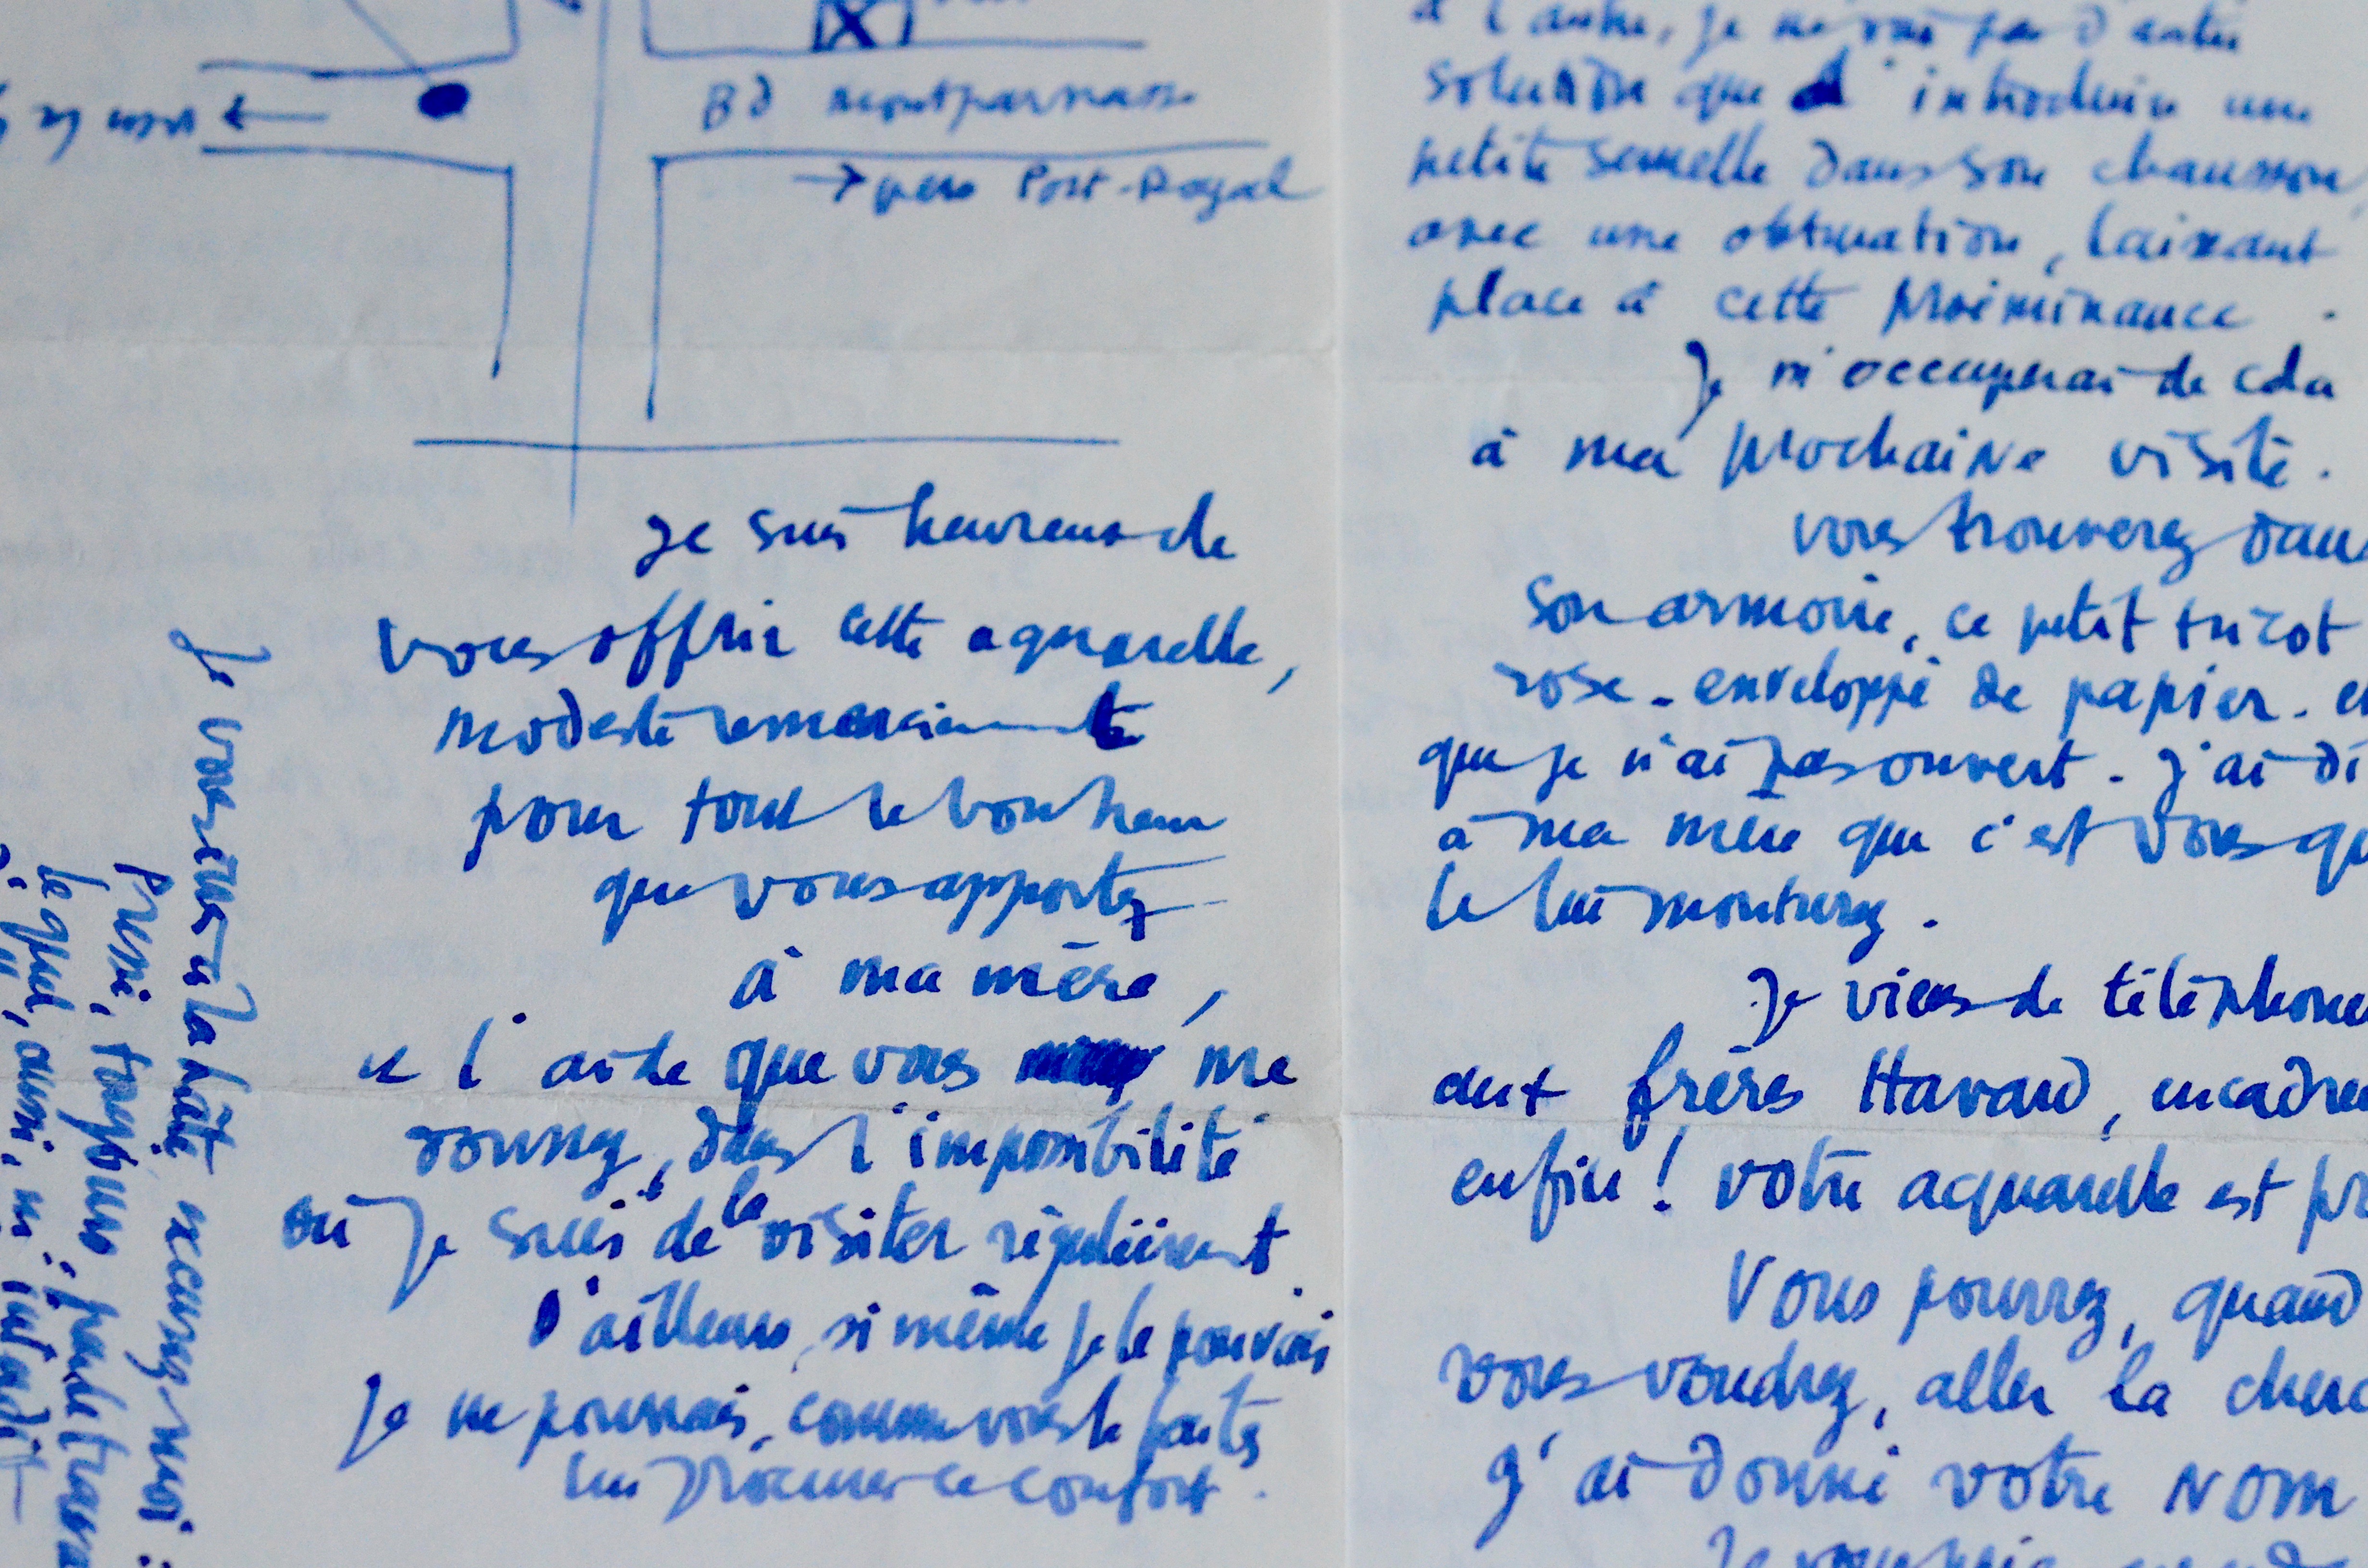 Bd Montparnasse
→ vers Port-Royal
je suis heureux de
vous offrir cette aquarelle,
modeste remerciement
pour tout le bonheur
que vous apportez
à ma mère,
et l'aide que vous me
donnez, dans l'impossibilité
où je suis de la visiter régulièrement
D'ailleurs, si même je le pouvais
je ne pourrais, comme vous le faites
lui procurer ce confort.
Je vous en
la hâte excusez-moi :
pressé, toujours, par le
lequel, aussi, m'interdit
à l'autre, je ne vois pas d'autre
solution que d'introduire une
petite semelle dans son chausson,
avec une obturation, laissant
place à cette proéminance.
Je m'occuperai de cela
à ma prochaine visite.
vous trouverez dans
son armoire, ce petit tricot
rose - enveloppé de papier - et
que je n'ai pas ouvert. J'ai di
à ma mère que c'est vous qu
le lui montrerez.
Je viens de téléphone
aux frères Havard, encadre
enfin ! votre aquarelle est pr
Vous pourrez, quand
vous voudrez, aller la cherc
J'ai donné votre nom